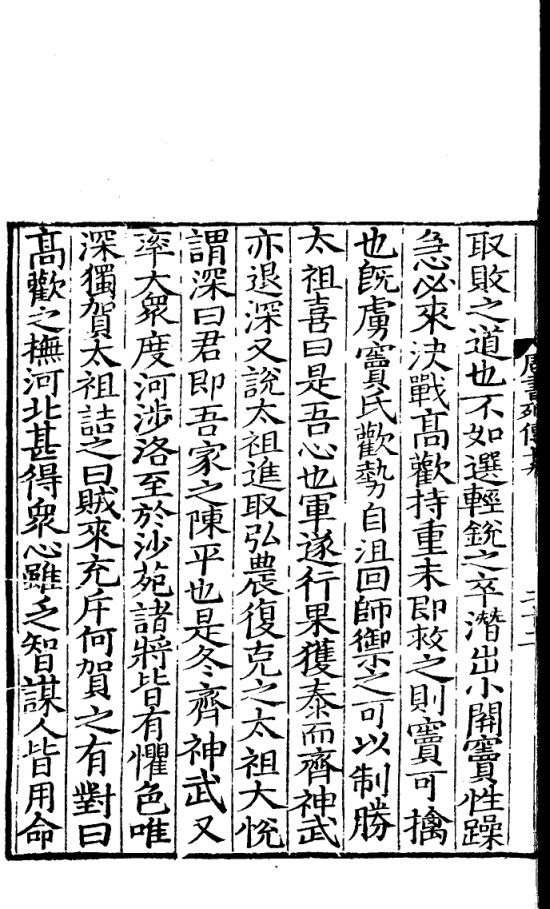 取敗之道也不如選輕銳之卒潛出小關竇性躁
急必來決戰高歡持重未即救之則竇可擒
也既虜竇氏歡勢自沮回師禦之可以制勝
太祖喜曰是吾心也軍遂行果獲泰而齊神武
亦退深又說太祖進取弘農復克之太祖大悅
謂深曰君即吾家之陳平也是冬齊神武又
率大衆度河涉洛至於沙苑諸將皆有懼色唯
深獨賀太祖詰之曰賊來充斥何賀之有對曰
高歡之撫河北甚得衆心雖乏智謀人皆用命